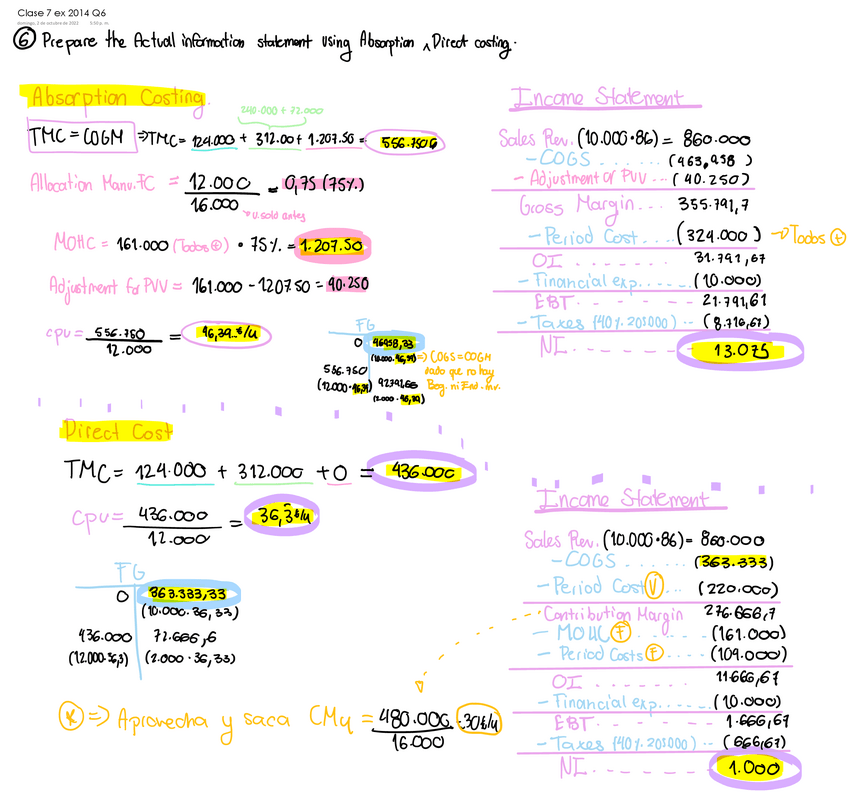 Clase 7 ex 2014 Q6
domingo, 2 de octubre de 2022 5:50 p. m.
⑥ Prepare the Actual information statement using Absorption ^ Direct costing.
Absorption Costing.
240.000 + 72.000
TMC = COGM ⇒TMC = 124.000 + 312.00 + 1.207.50 = 556.7506
Allocation Manu.FC = 12.000 = 0,75 (75%)
16.000
* u.sold antes
MOHC = 161.000 (Todos ⊕) • 75% = 1.207.50
Adjustment for PVV = 161.000 - 120750 = 40.250
cpu = 556.750 = 46,39 $/u
12.000
FG
0 46958,33
(10.000 · 46,39) ⇒ COGS = COGM
556.750 dado que no hay
(12.000 · 46,39) 92791,66 Beg. ni End. inv.
(2.000 · 46,39)
Income Statement
Sales Rev. (10.000 • 86) = 860.000
- COGS ..... (463,958)
- Adjustment of PVV ... (40.250)
Gross Margin .... 355.791,7
- Period Cost .... (324.000) → Todos ⊕
OI ...... 31.791,67
- Financial exp. ..... (10.000)
EBT ...... 21.791,61
- Taxes (40% 205000) .. (8.716,67)
NI ...... 13.075
Direct Cost
TMC = 124.000 + 312.000 + 0 = 436.000
cpu = 436.000 = 36,3 $/u
12.000
FG
0 363.333,33
(10.000 · 36,33)
436.000 72.666,6
(12.000 · 36,3) (2.000 · 36,33)
Income Statement
Sales Rev. (10.000 • 86) = 860.000
- COGS ...... (363.333)
- Period Cost Ⓥ ... (220.000)
Contribution Margin 276.666,7
- MOHC Ⓕ ...... (161.000)
- Period Costs Ⓕ .... (109.000)
OI ...... 11666,67
- Financial exp. ..... (10.000)
EBT ...... 1.666,67
- Taxes (40% 205000) .. (666,67)
NI ...... 1.000
Ⓧ ⇒ Aprovecha y saca CMu = 480.000 = 30 $/u
16.000